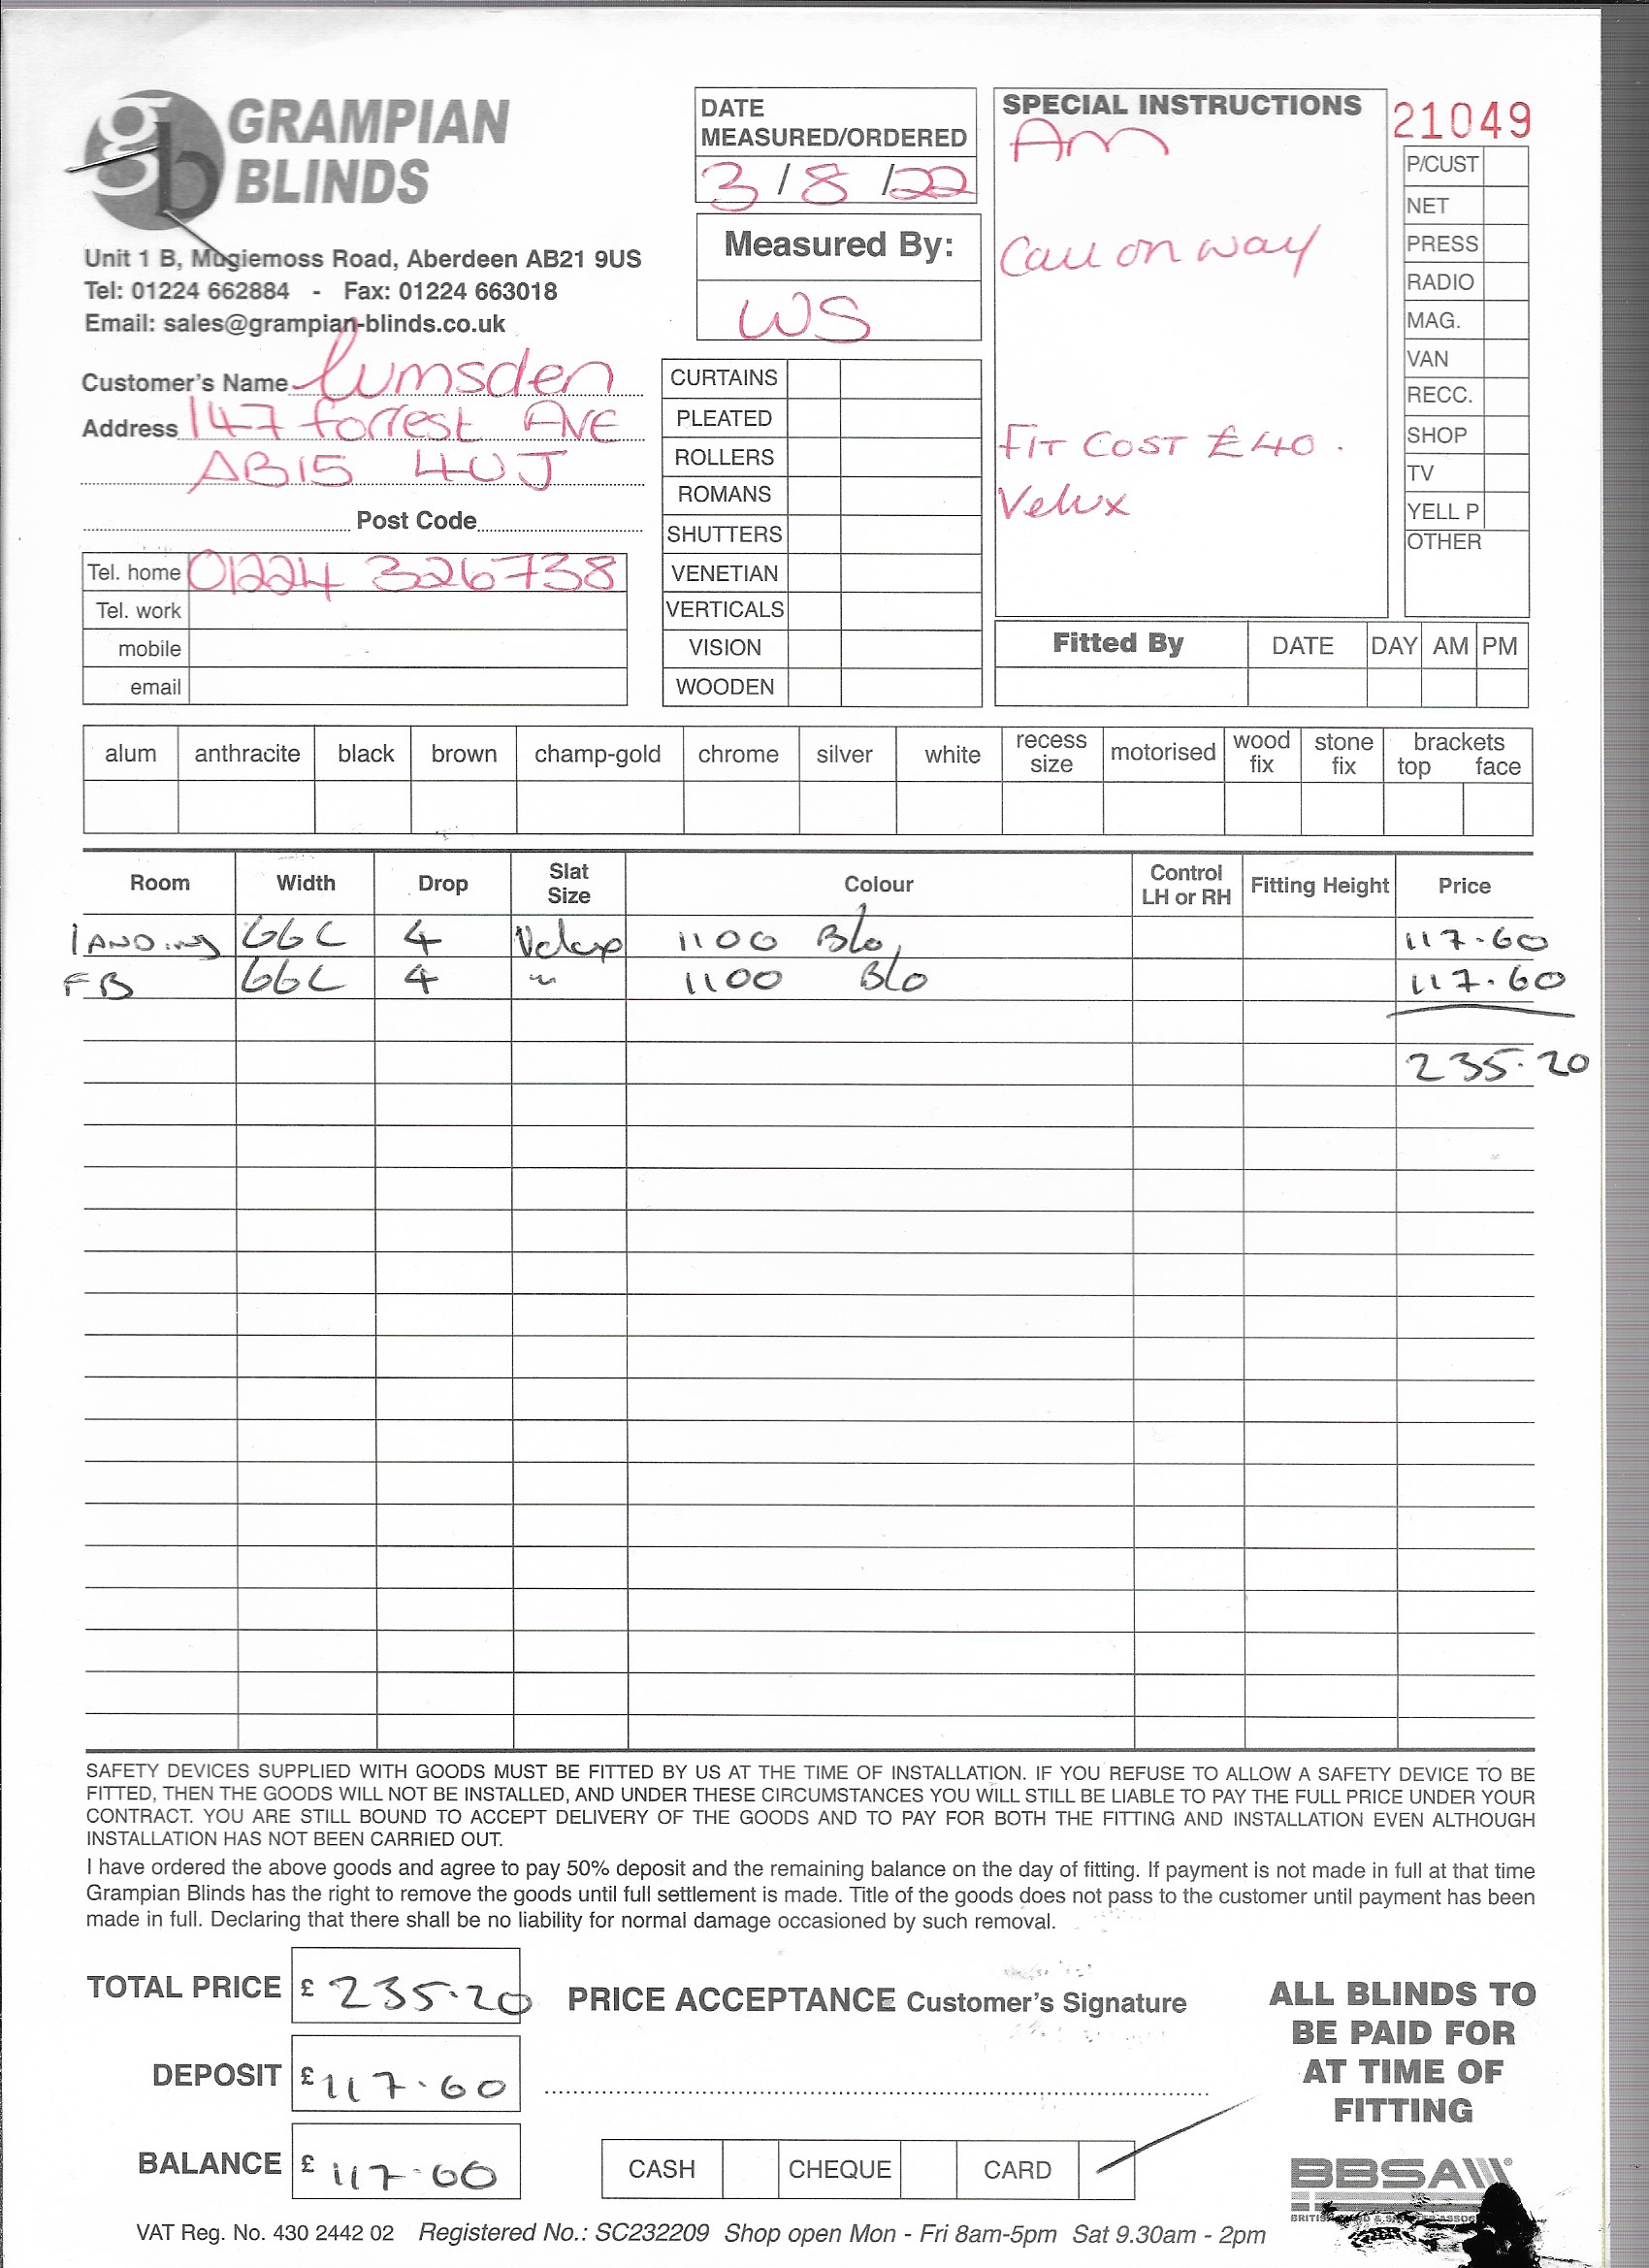 gb GRAMPIAN
BLINDS
Unit 1 B, Mugiemoss Road, Aberdeen AB21 9US
Tel: 01224 662884 - Fax: 01224 663018
Email: sales@grampian-blinds.co.uk
Customer's Name Lumsden
Address 147 forrest AVE
AB15 4UJ
Post Code
Tel. home 01224 326738
Tel. work
mobile
email
DATE
MEASURED/ORDERED
3/8/22
Measured By:
WS
CURTAINS
PLEATED
ROLLERS
ROMANS
SHUTTERS
VENETIAN
VERTICALS
VISION
WOODEN
SPECIAL INSTRUCTIONS
Am
Call on way
FIT COST £40.
Velux
21049
P/CUST
NET
PRESS
RADIO
MAG.
VAN
RECC.
SHOP
TV
YELL P
OTHER
Fitted By DATE DAY AM PM
alum anthracite black brown champ-gold chrome silver white recess size motorised wood fix stone fix brackets top face
Room Width Drop Slat Size Colour Control LH or RH Fitting Height Price
LANDing GGL 4 1100 Blo 117.60
FB GGL 4 " 1100 Blo 117.60
235.20
SAFETY DEVICES SUPPLIED WITH GOODS MUST BE FITTED BY US AT THE TIME OF INSTALLATION. IF YOU REFUSE TO ALLOW A SAFETY DEVICE TO BE
FITTED, THEN THE GOODS WILL NOT BE INSTALLED, AND UNDER THESE CIRCUMSTANCES YOU WILL STILL BE LIABLE TO PAY THE FULL PRICE UNDER YOUR
CONTRACT. YOU ARE STILL BOUND TO ACCEPT DELIVERY OF THE GOODS AND TO PAY FOR BOTH THE FITTING AND INSTALLATION EVEN ALTHOUGH
INSTALLATION HAS NOT BEEN CARRIED OUT.
I have ordered the above goods and agree to pay 50% deposit and the remaining balance on the day of fitting. If payment is not made in full at that time
Grampian Blinds has the right to remove the goods until full settlement is made. Title of the goods does not pass to the customer until payment has been
made in full. Declaring that there shall be no liability for normal damage occasioned by such removal.
TOTAL PRICE £ 235.20
DEPOSIT £ 117.60
BALANCE £ 117.60
PRICE ACCEPTANCE Customer's Signature
CASH CHEQUE CARD
ALL BLINDS TO
BE PAID FOR
AT TIME OF
FITTING
BBSA
VAT Reg. No. 430 2442 02 Registered No.: SC232209 Shop open Mon - Fri 8am-5pm Sat 9.30am - 2pm